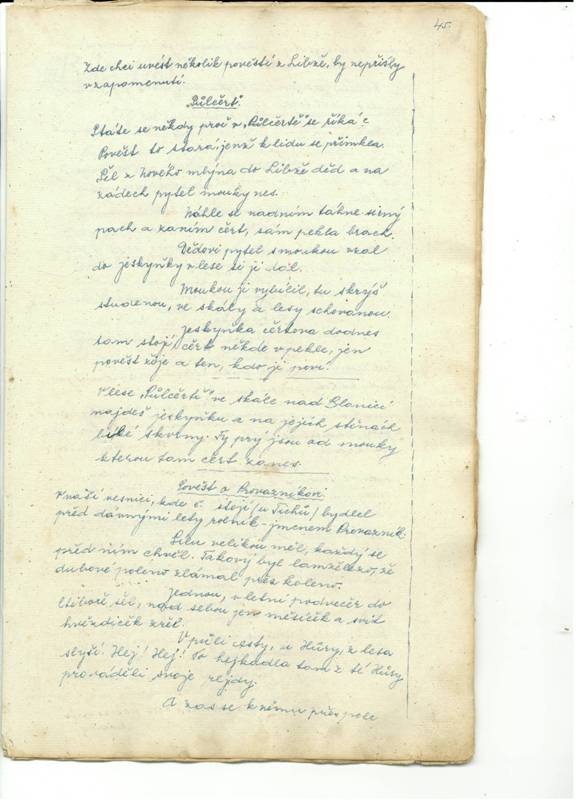 45.
Zde chci uvést několik pověstí z Libzě, by nepřišly
v zapomenutí.
„Půlčert".
Ptáte se někdy proč v „Půlčertě" se říká?
Pověst to stará, jenž k lidu se přimkla.
Šel z Nového mlýna do Libzě děd a na
zádech pytel mouky nes.
Náhle se nad ním táhne sirný
pach a za ním čert, sám pekla brach.
Dědovi pytel s moukou vzal
do jeskyňky v lese si jí dal.
Moukou ji vybílil, tu skrýš
studenou, ve skály a lesy schovanou.
Jeskyňka čertova dodnes
tam stojí, čert někde v pekle, jen
pověst žije a ten, kdo jí poví.
V lese „Půlčertě" ve skále nad Blanicí
najdeš jeskyňku a na jejích stěnách
bílé skvrny. Ty prý jsou od mouky
kterou tam čert zanes.
Pověst o Provazníkovi
V naší vesnici, kde č. stojí (u Tichů) bydlel
před dávnými lety rolník - jmenem Provazník.
Sílu velikou měl, každý se
před ním chvěl. Takový byl lamželezo, že
dubové poleno zlámal přes koleno.
Jednou, v letní podvečer do
Ctiboře šel, nad sebou jen měsíček a svit
hvězdiček zřel.
V půli cesty, u Hůry, z lesa
slyší: Hej! Hej! To hejkadla tam z té Hůry
prováděli svoje rejdy.
A zas se k němu přes pole